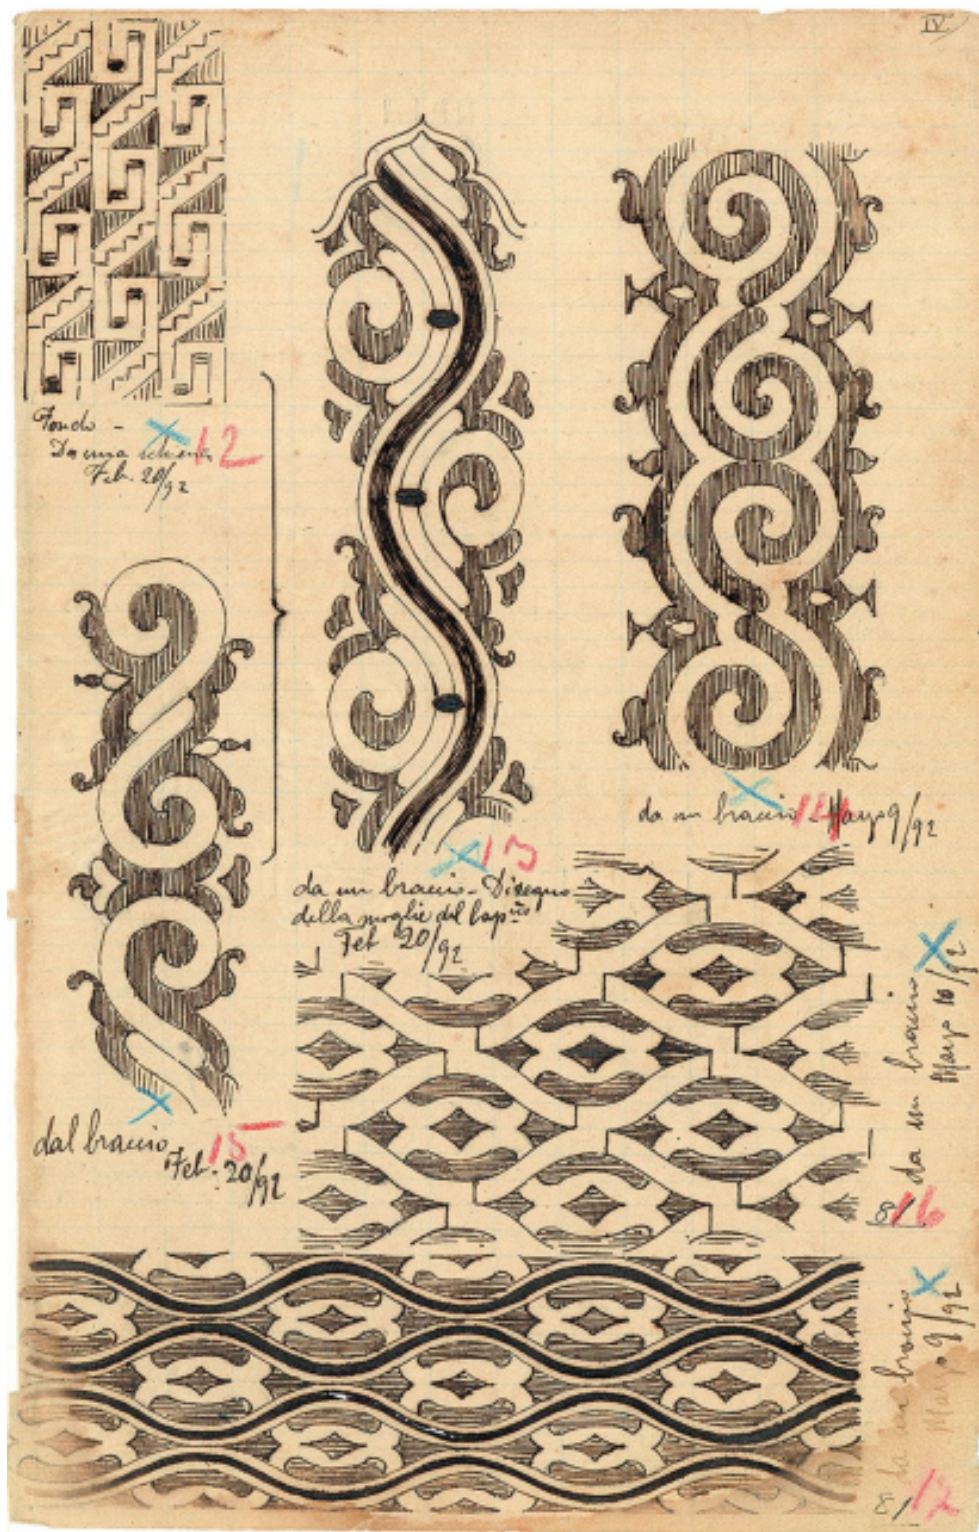 IV
Fondo -
Da una schiena
Feb. 20/92
12
da un braccio - Disegno
della moglie del Cap
Feb 20/92
13
da un braccio - Marzo 9/92
14
dal braccio
Feb. 20/92
15
da un braccio
Marzo 10/92
8/
16
da un braccio
Marzo 9/92
8/
17